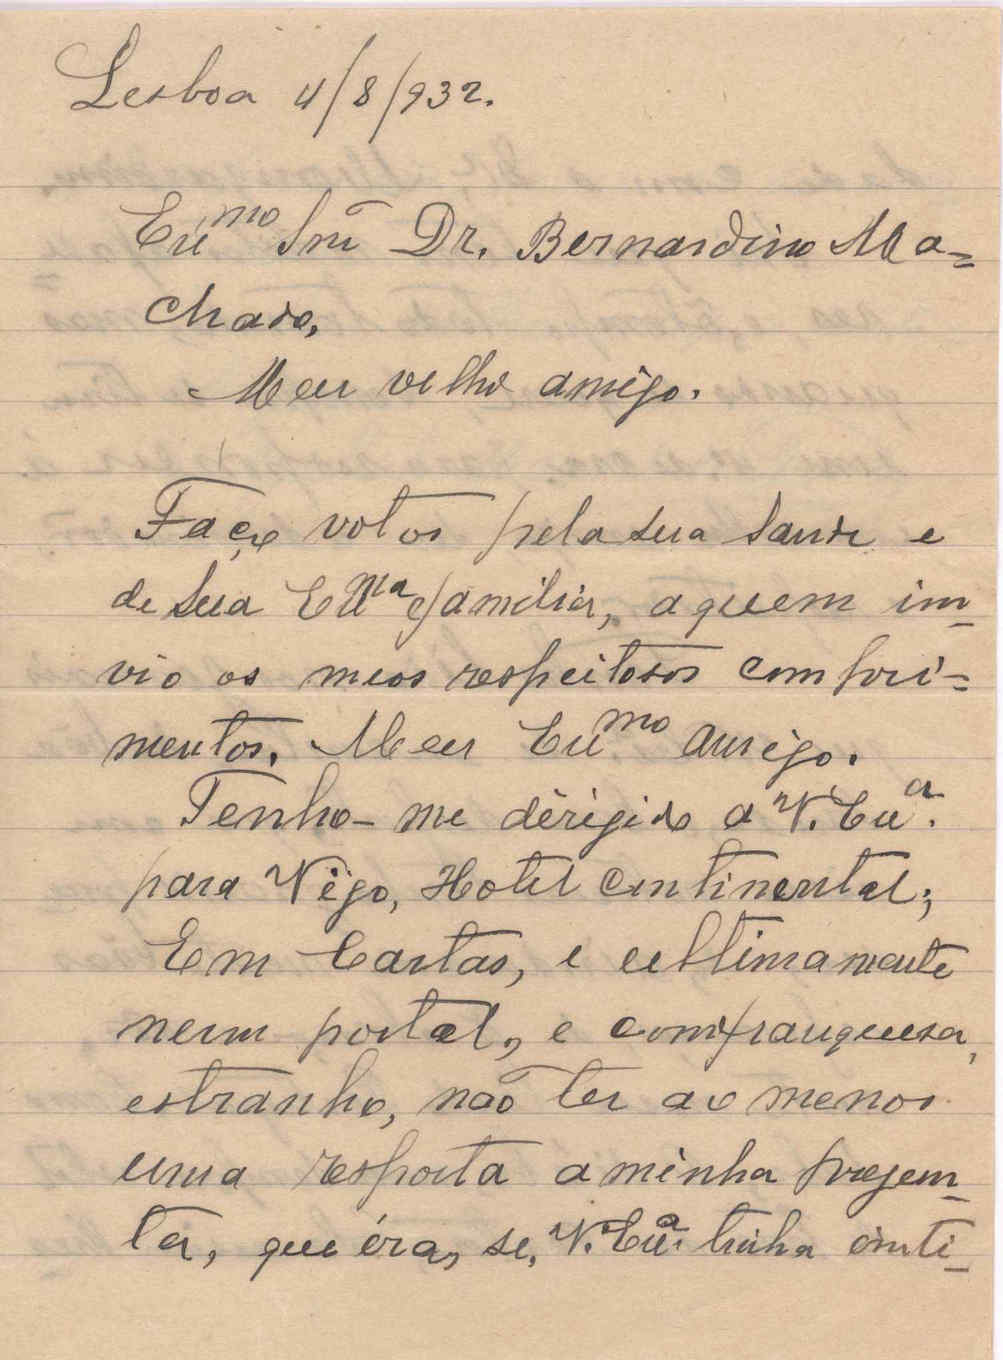 Lesboa 4/8/932.
Exmo Snr Dr. Bernardino Ma=
chado,
Meu velho amigo.
Faço votos pela sua saude e
de sua Exma familia, a quem im-
vio os meos respeitosos compri=
mentos. Meu Exmo amigo.
Tenho-me dirigido a V. Exa.
para Vigo, Hotel Continental;
Em Cartas, e ultimamente
num postal, e com franquesa,
estranho, não ter ao menos
uma resposta a minha pregun-
ta, que éra, se, V. Exa. tinha inti-